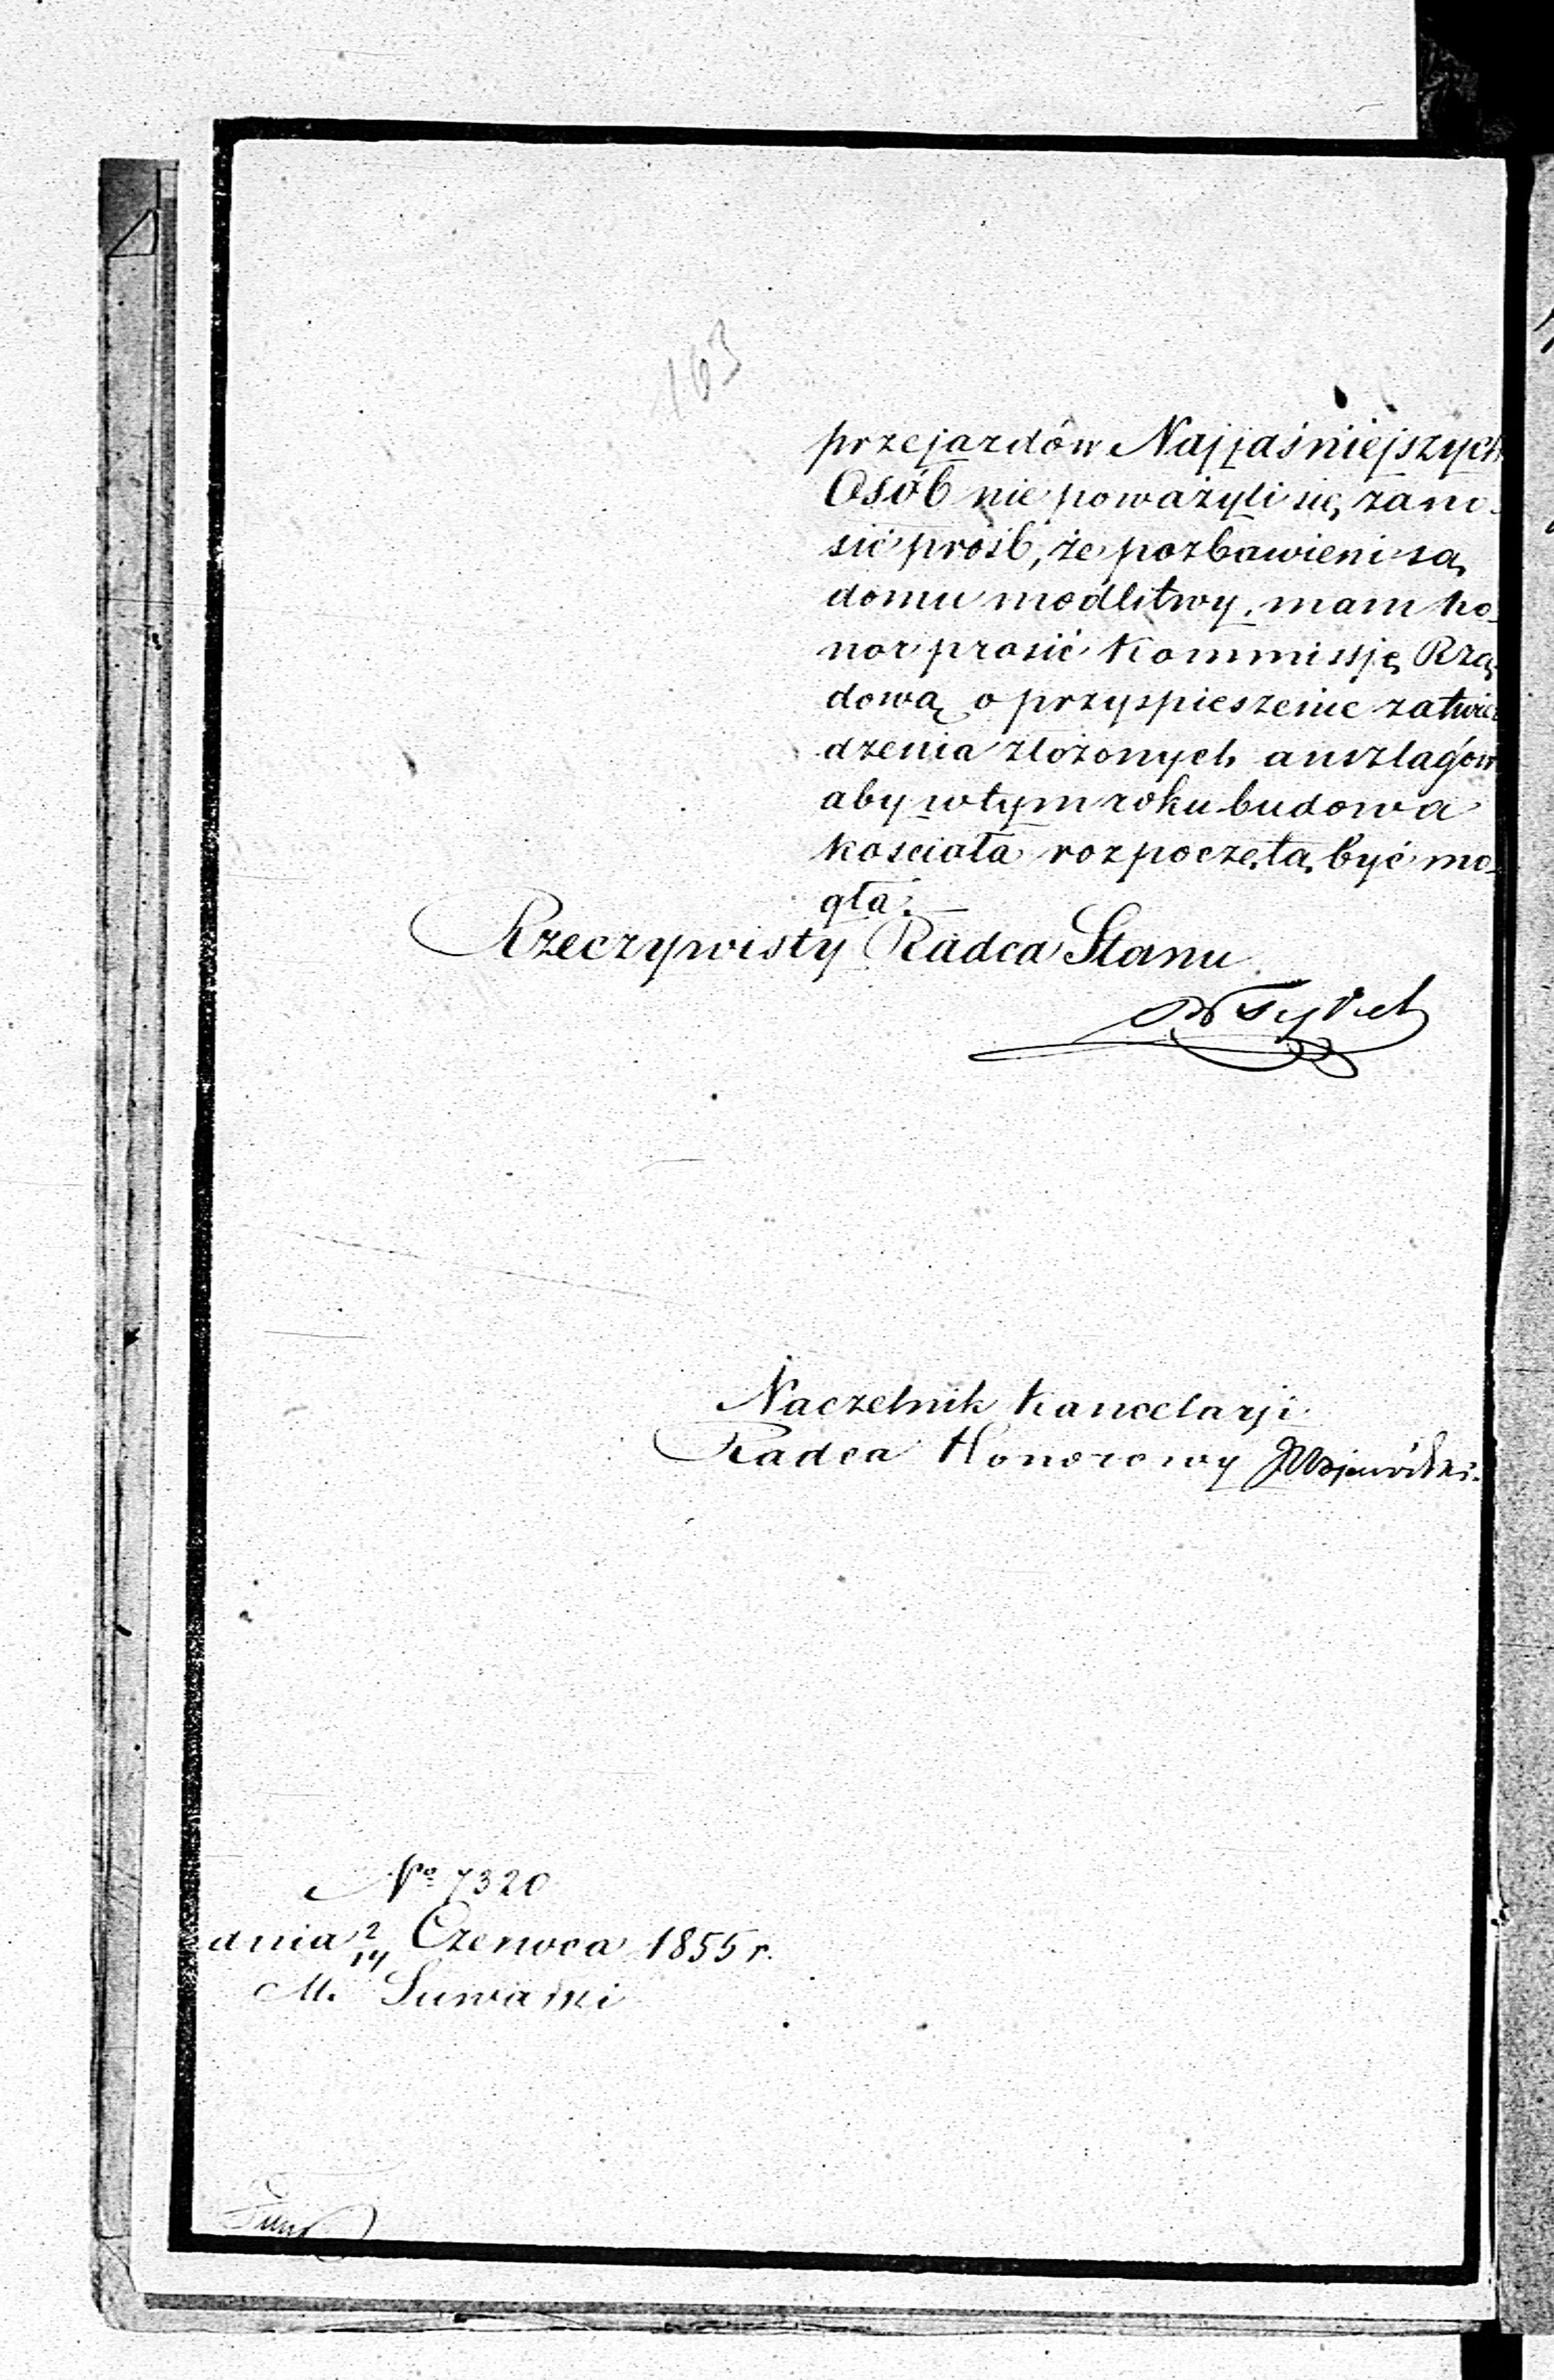 163
przejazdów Najjaśniejszych
Osób nie poważyli się zano-
sić próśb, że pozbawieni są
domu modlitwy, mam ho-
nor prosić Kommissję Rzą-
dową o przyspieszenie zatwier-
dzenia złożonych anszlagów
aby w tym roku budowa
kościoła rozpoczętą być mo-
gła.
Rzeczywisty Radca Stanu
Naczelnik Kancelarji
Radca Honorowy
No 7320
dnia 2/14 Czerwca 1855 r.
M. Suwałki